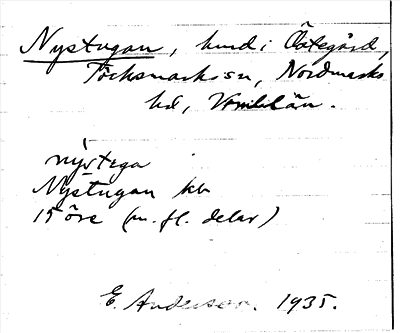 Nystugan, hmd i Östegård,
Töcksmarks sn, Nordmarks
hd, Vrml län.
nýstega
Nystugan kb
15 öre (m. fl. delar)
E. Andersson. 1935.